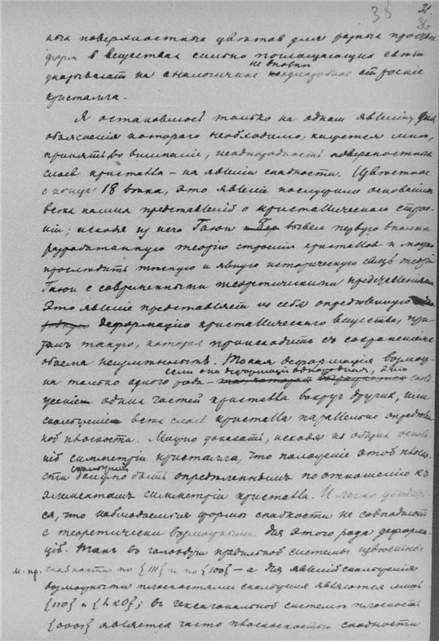 38
ных поверхностных цветов для разных простых
форм в веществах сильно поглощающих свет
не вполне
указывает на аналогичное неоднородное строение
кристалла.
Я остановлюсь только на одном явлении, для
объяснения которого необходимо, кажется мне,
принять во внимание, неоднородность поверхностных
слоев кристалла – на явлении спайности.
с конца 18 века, это явление послужило основанием
всех наших представлений о кристаллическом строе-
нии; исходя из него Гаюи возвел первую вполне
разработанную теорию строения кристаллов и можно
проследить точную и явную историческую связь теории
Гаюи с современными теоретическими представлениями.
Это явление представляет из себя определенную
деформацию кристаллического вещества, при-
том такую, которая происходит с сохранением
объема неизменным. Такая деформация возмож-
если она деформация однородная,
на только одного рода
одних частей кристалла вокруг других, или
скольжение всех слоев кристалла параллельно определен-
ной плоскости. Можно доказать, исходя из общих основа-
ний симметрии кристалла, что положение этой плоско-
скольжения
сти должно быть определенным по отношению к
элементам симметрии кристалла. И легко убедить-
ся, что наблюдаемые формы спайности не совпадают
с теоретически возможными для этого рода деформа-
ций. Так в правильной системе известны
м. пр. спайности по {111} и по {100} – а для явлений скольжения
возможными плоскостями скольжения являются лишь
{110} и {hk0}; в гексагональной системе плоскость
{0001} является часто плоскостью спайности